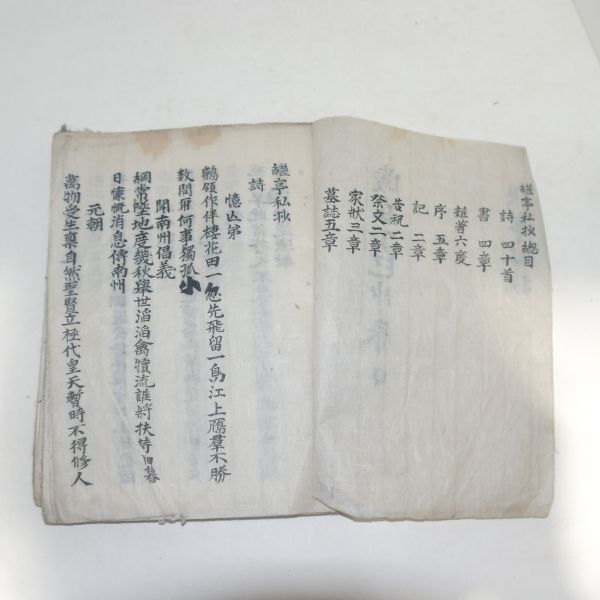 繼亭私抄總目
詩 四十首
書 四章
雜著六度
序 五章
記 二章
告祝二章
祭文二章
家狀三章
墓誌五章
繼亭私抄
詩
憶亡弟
鶺領作伴棲花田一忽先飛留一島江上鴈羣不勝
數問爾何事獨孤小
聞南州倡義
綱常墜地度幾秋舉世滔滔禽犢流誰將扶
日懷慨消息傳南州
元朝
萬物受生稟自然聖賢立極代皇天暫時不得修人